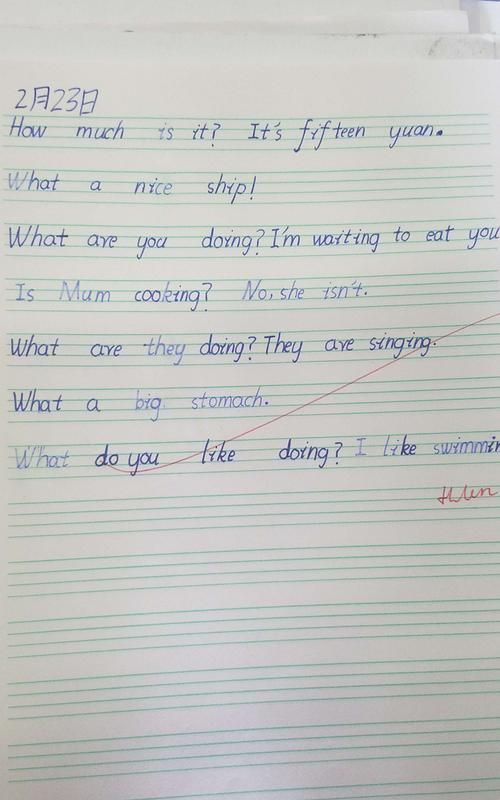 2月23日
How much is it? It's fifteen yuan.
What a nice ship!
What are you doing? I'm waiting to eat you
Is Mum cooking? No, she isn't.
What are they doing? They are singing.
What a big stomach.
What do you like doing? I like swimmin